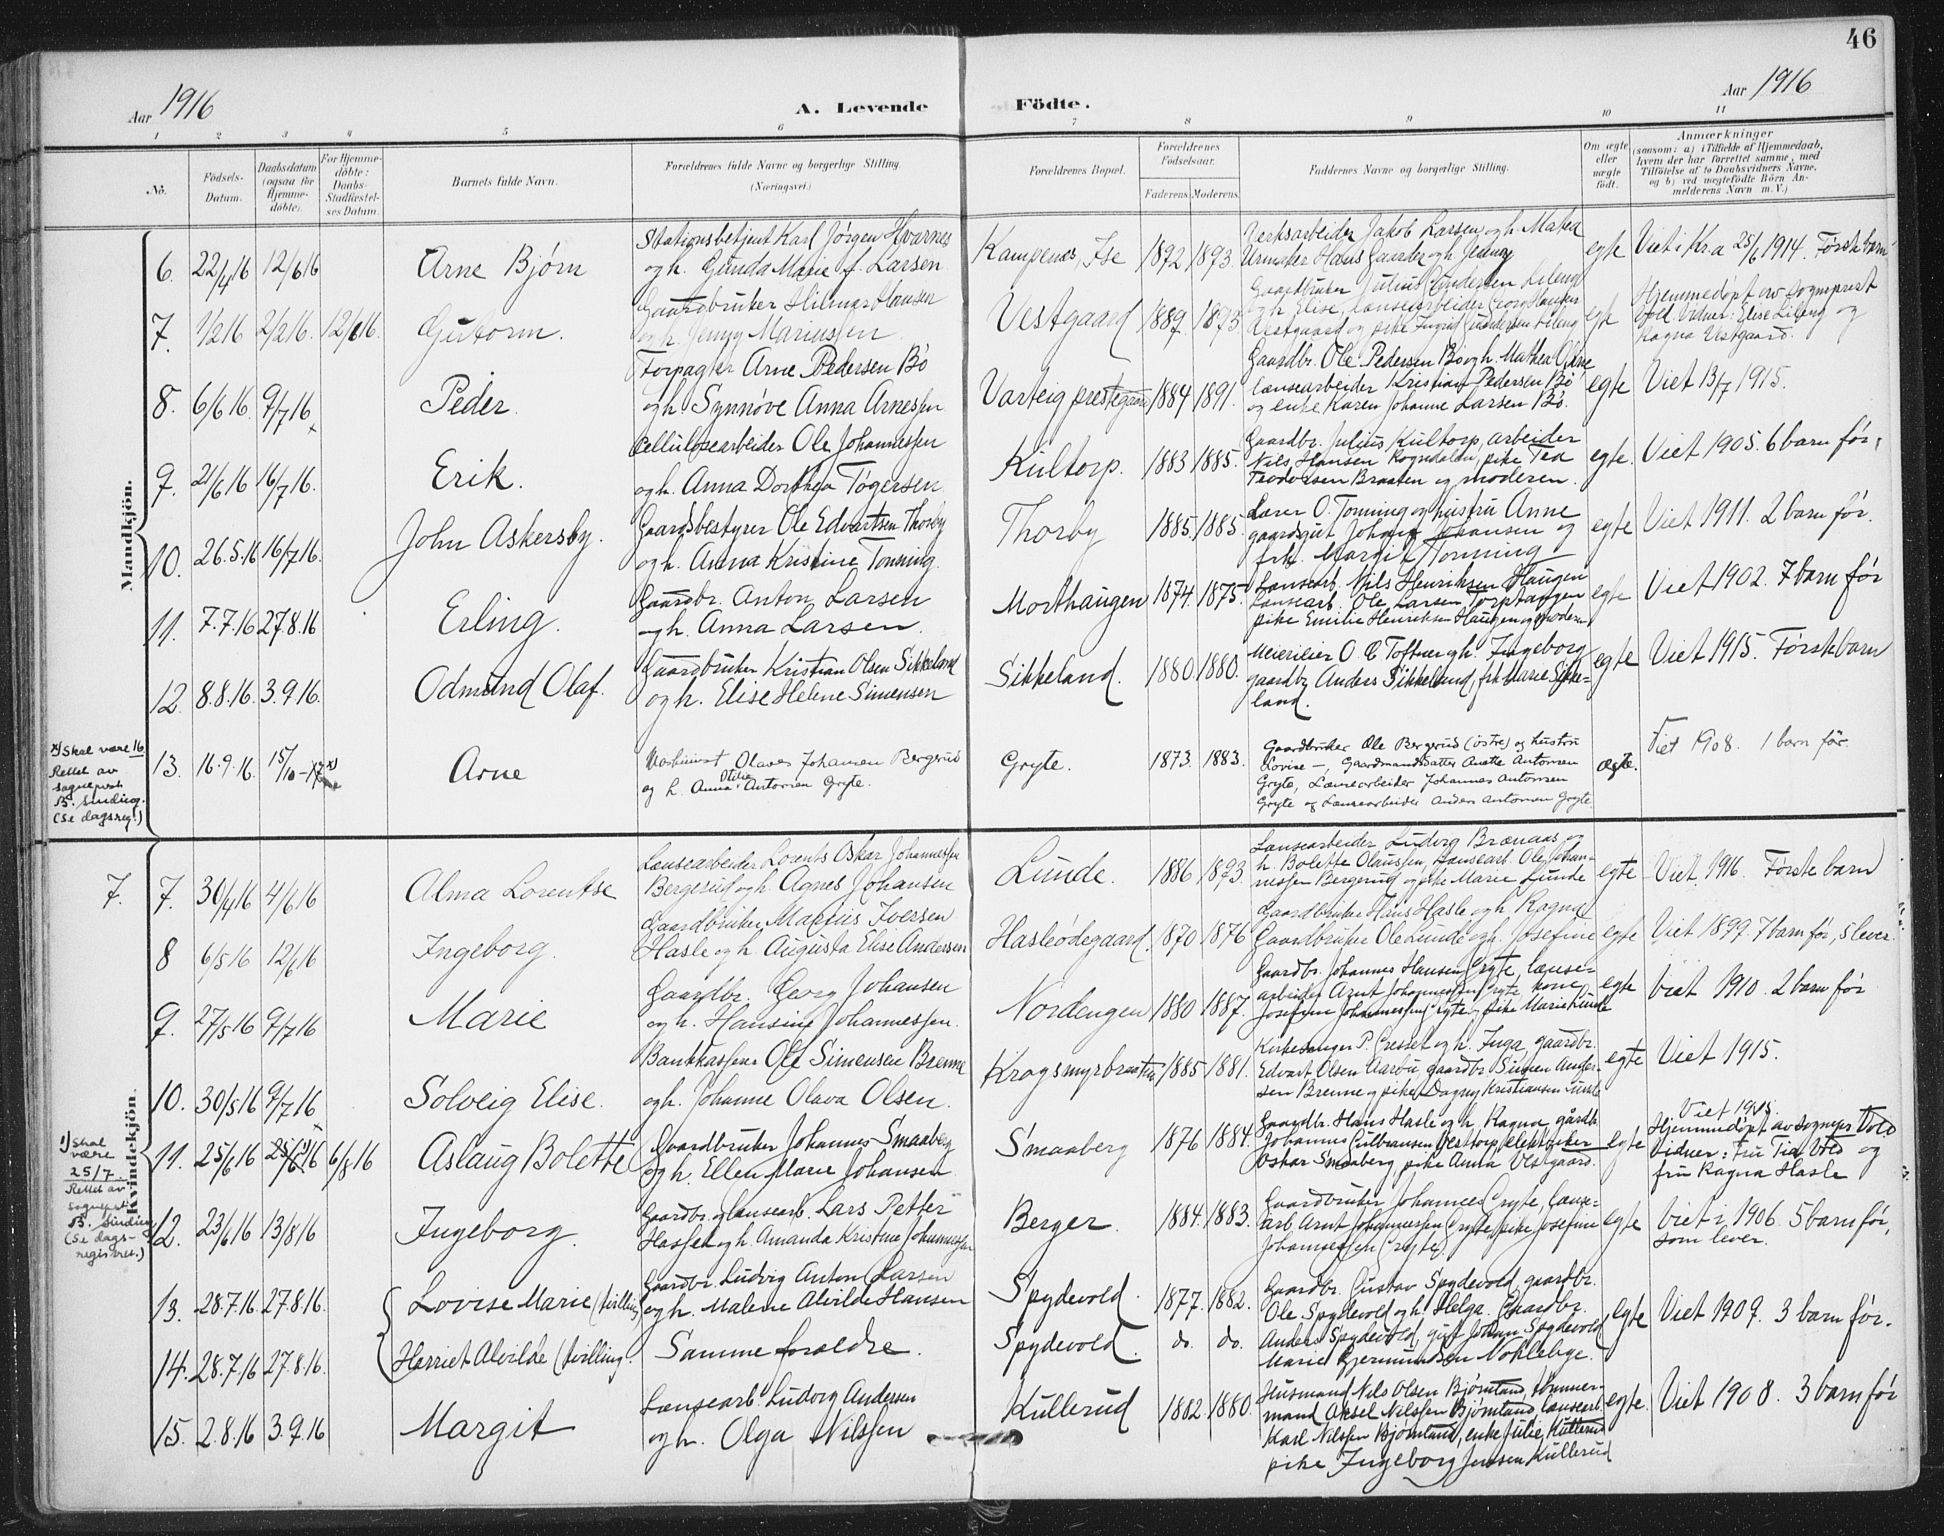 46
Aar 1916
A. Levende Födte.
Aar 1916
1 2 3 4 5 6 7 8 9 10 11
No.
Födsels-Datum.
Daabsdatum (ogsaa for Hjemme-döbte).
For Hjemme-döbte: Daabs-Stadfæstel-ses Datum.
Barnets fulde Navn.
Forældrenes fulde Navne og borgerlige Stilling. (Næringsvei.)
Forældrenes Bopæl.
Forældrenes Födselsaar.
Faderens. Moderens.
Faddernes Navne og borgerlige Stilling.
Om ægte eller uægte födt.
Anmærkninger
(saasom: a) i Tilfælde af Hjemmedaab,
hvem der har forrettet samme, med
Tilföielse af to Daabsvidners Navne,
og b) ved uægtefödte Börn An-
melderens Navn m. V.)
Mandkjön.
6. 22/4 16 12/6 16 Arne Bjørn
Stationsbetjent Karl Jörgen Hvarnes
og h. Gunda Marie f. Larsen
Kampenæs, Ise 1892 1893
Verksarbeider Jakob Larsen og h. Mathea
Urmaker Hans Gaarder og h. Jenny
egte Viet i Kra 25/6 1914. Første barn
7. 1/2 16 2/2 16 12/6 16 Guttorm.
Gaardbruker Hilmar Hansen
og h. Jenny Mariussen
Vestgaard 1889. 1893
Gaardbruker Julius Gundersen Lileng
og h. Elise, lænsearbeider Georg Hansen
Vestgaard og pike Ingrid Gundersen Lileng
egte Hjemmedøpt av sogneprest
Vold. Vidner: Elise Lileng og
Ragna Vestgaard.
8. 6/6 16. 9/7 16 Peder.
Forpagter Arne Pedersen Bö
og h. Synnöve Anna Arnesen
Varteig prestegaard 1884 1891.
Gaardbr. Ole Pedersen Bö og h. Mathea
lænsearbeider Kristian Pedersen Bö
og enke Karen Johanne Larsen Bö.
egte Viet 13/7 1915.
9. 21/6 16 16/7 16. Erik.
Cellulosearbeider Ole Johannessen
og h. Anna Dorthea Togersen
Kultorp. 1883 1885.
Gaardbr. Julius Kultorp, arbeider
Nils Hansen Kogndalen, pike Tea
Teodorsen Braaten og moderen.
egte. Viet 1905. 6 barn før.
10. 26.5.16 16/7 16. John Askersby.
Gaardsbestyrer Ole Edvartsen Thorby
og h. Anna Kristine Tonning.
Thorby 1885. 1885.
Lærer O. Tonning og hustru Anne
gaardsgut Johan Johansen og
frk. Margit Tonning
egte Viet 1911. 2 barn før.
11. 7.7.16 27.8.16 Erling.
Gaardbr. Anton Larsen
og h. Anna Larsen.
Morthaugen 1874 1875.
Lænsearb. Nils Henriksen Haugen
Lænsearb. Ole Larsen Torphaugen
pike Emilie Henriksen Haugen og moderen
egte Viet 1902. 7 barn før
12. 8.8.16. 3.9.16. Odmund Olaf.
Gaardbruker Kristian Olsen Sikkeland
og h. Elise Helene Simensen
Sikkeland. 1880. 1880.
Meierieier O. C. Toftner og h. Ingeborg
gaardbr. Anders Sikkeland, frk. Marie Sikke-
land.
egte Viet 1915. Første barn
13. 16.9.16. 15/10 - 17 x) Arne
Maskinist Olaves Johansen Bergerud
og h. Anna Otilie Antonsen Gryte.
Gryte. 1873. 1883.
Gaardbruker Ole Bergerud (østre) og hustru
Lovise —, Gaardmandsdatter Anette Antonsen
Gryte, Lænsearbeider Johannes Antonsen
Gryte og Lænsearbeider Anders Antonsen Gryte
ægte. Viet 1908. 1 barn før.
x) Skal være 16
Rettet av
sogneprest
B. Sinding.
(Se dagsreg.)
Kvindekjön.
7. 7. 30/4 16 4/6 16 Alma Lorentse
Lænsearbeider Lorents Oskar Johannessen
Bergerud og h. Agnes Johansen
Lunde. 1886 1893
Lænsearbeider Ludvig Brænaas og
h. Bolette Olaussen, Lænsearb. Ole Johan-
nessen Bergerud og pike Marie Lunde
egte Viet 1916. Første barn
8 6/5 16 12/6 16 Ingeborg.
Gaardbruker Marius Iversen
Hasle og h. Augusta Elise Andersen
Hasleödegaard. 1870 1876
Gaardbruker Hans Hasle og h. Ragna
Gaardbruker Ole Lunde og h. Josefine
egte Viet 1899. 7 barn før, 5 lever.
9. 27/5 16 9/7 16 Marie
Gaardbr. Georg Johansen
og h. Hansine Johannessen.
Nordengen 1880 1887.
Gaardbr. Johannes Hansen Gryte, lænse-
arbeider Arnt Johannessen Gryte, kone
Josefine Johannessen Gryte, pike Marie Lunde
egte Viet 1910. 2 barn før
10. 30/5 16 9/7 16 Solveig Elise.
Bankkasserer Ole Simensen Brenne
og h. Johanne Olava Olsen.
Krogsmyrbraaten 1885 1881.
Kirkesanger P. Gresset og h. Inga, gaardbr.
Edvart Olsen Aarbu, gaardbr. Simen Ander-
sen Brenne og pike Dagny Kristiansen
egte Viet 1915.
11. 25/6 16 25/6 16 1) 6/8 16 Aslaug Bolette
Gaardbruker Johannes Smaaberg
og h. Ellen Marie Johansen
Smaaberg 1876 1884.
Gaardbr. Hans Hasle og h. Ragna, gårdb.
Johannes Gulbransen Vestorp, elektriker
Oskar Smaaberg, pike Anna Vestgaard.
egte Viet 1915.
Hjemmedøpt av sognepr. Vold
Vidner: Fru Tia Vold og
fru Ragna Hasle
1) Skal
være
25/7.
Rettet av
sognepr.
B. Sinding
(Se dags-
registret.)
12. 23/6 16 13/8 16 Ingeborg.
Gaardbr. og lænsearb. Lars Petter
Hassen og h. Amanda Kristine Johannessen
Berger. 1884. 1883.
Gaardbruker Johannes Gryte, lænse-
arb. Arnt Johannessen Gryte, pike Josefine
Johannessen Gryte.
egte Viet i 1906. 5 barn før,
som lever.
13. 28.7.16. 27.8.16. Lovise Marie (tvilling)
Gaardbr. Ludvig Anton Larsen
og h. Malene Alvilde Hansen
Spydevold. 1877. 1882.
Gaardbr. Gustav Spydevold, gaardbr.
Ole Spydevold og h. Helga. Gaardbr.
egte Viet 1909. 3 barn før.
14. 28.7.16 27.8.16. Harriet Alvilde (tvilling.
Samme foreldre.
Spydevold. do. do.
Anders Spydevold, gut Johan Spydevold
Marie Gjermundsen Nokleby.
15. 2.8.16 3.9.16 Margit
Lænsearb. Ludvig Andersen
og h. Olga Nilssen
Kullerud 1882. 1880.
Husmand Nils Olsen Bjørnland, tömmer-
mand Aksel Nilssen Bjørnland, lænsearb.
Karl Nilssen Bjørnland, enke Julie Kullerud
pike Ingeborg Jensen Kullerud
egte. Viet 1908. 3 barn før